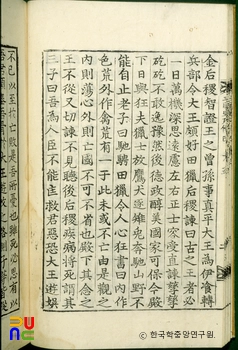 金后稷智證王之曾孫事真平大王爲伊飡轉
兵部令大王頗好田獵后稷諫曰古之王者必
一日萬機深思遠慮左右正士容受直諫孳孳
矻矻不敢逸豫然後德政醇美國家可保今殿
下日與狂夫獵士放鷹犬逐雉兔奔馳山野不
能自止老子曰馳騁田獵令人心狂書曰內作
色荒外作禽荒有一于此未或不亡由是觀之
內則蕩心外則亡國不可不省也殿下其念之
王不從又切諫不見聽後后稷疾病將死謂其
三子曰吾爲人臣不能匡救君惡恐大王遊娛
不已以至於亡敗是吾所憂也雖死必思有以
한국학중앙연구원